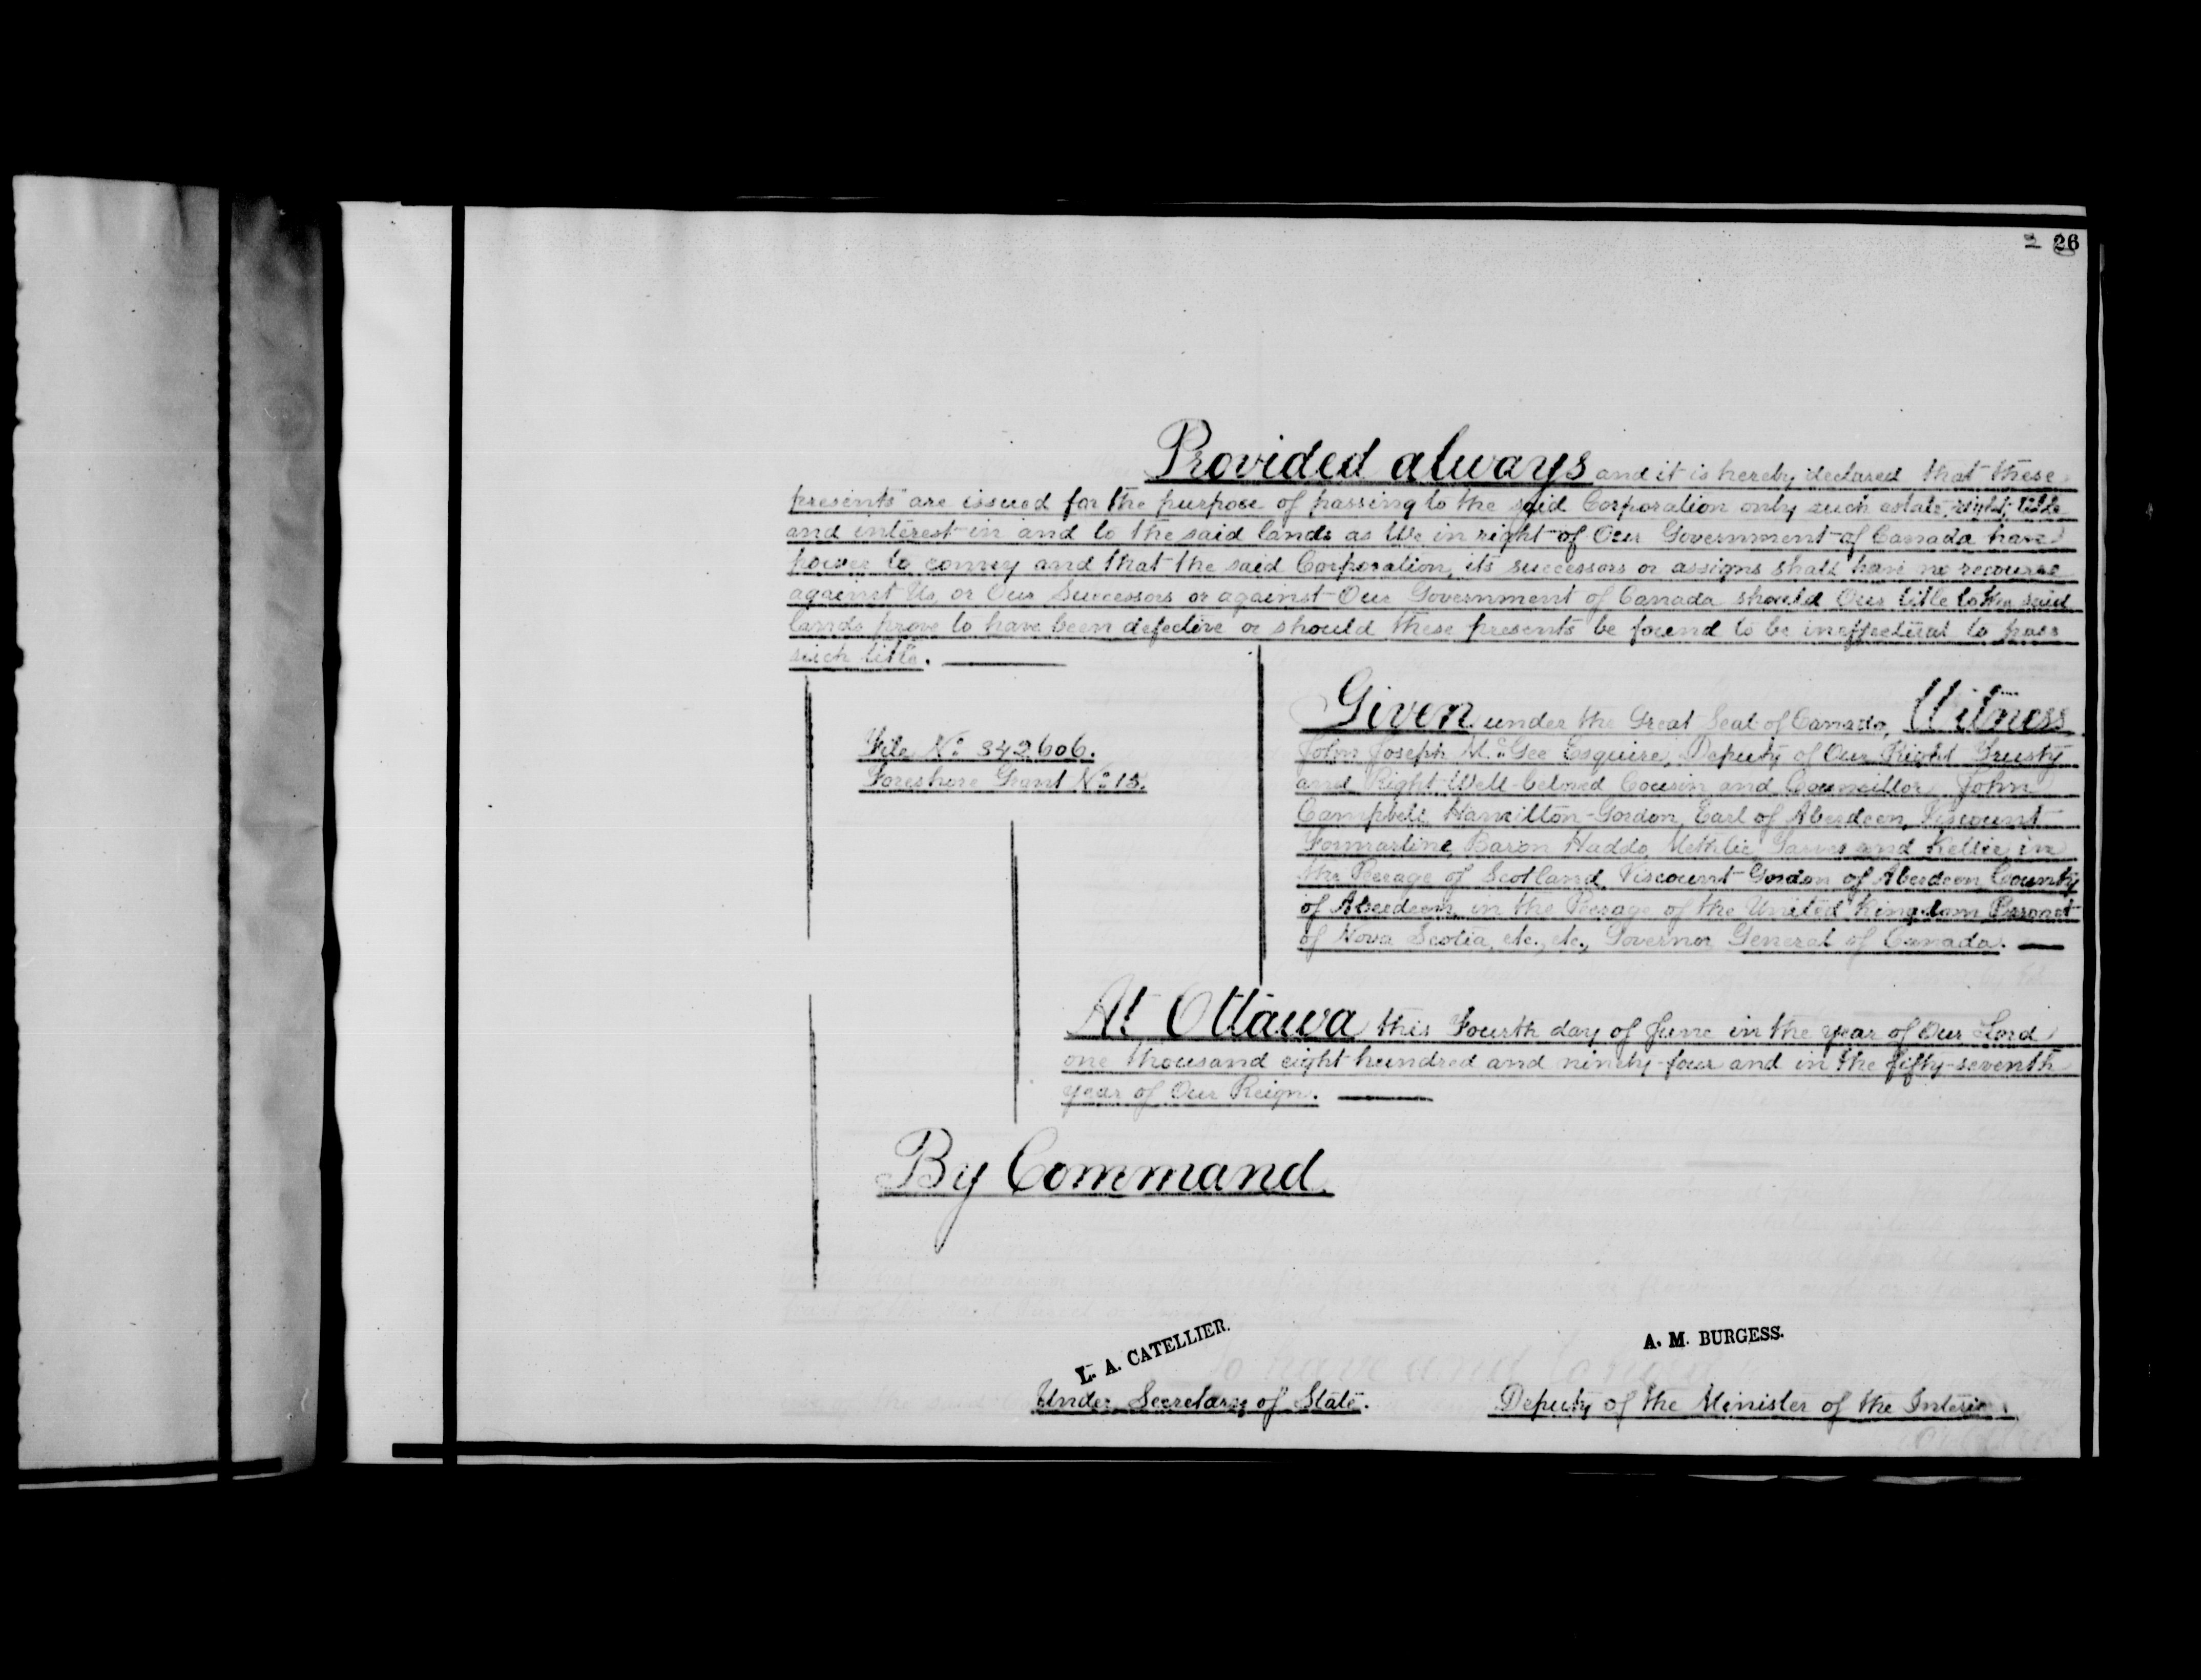 26
Provided always and it is hereby declared that these
presents are issued for the purpose of passing to the said Corporation only such estate, right, title
and interest in and to the said lands as We in right of Our Government of Canada have
power to convey and that the said Corporation, its successors or assigns shall have no recourse
against Us, or Our Successors or against Our Government of Canada should Our title to the said
lands prove to have been defective or should these presents be found to be ineffectual to pass
such title.
Given under the Great Seal of Canada, Witness
File No 342606.
John Joseph McGee Esquire, Deputy of Our Right Trusty
Foreshore Grant No 15.
and Right Well-beloved Cousin and Councillor John
Campbell Hamilton-Gordon, Earl of Aberdeen, Viscount
Formartine, Baron Haddo, Methlic, Tarves and Kellie in
the Peerage of Scotland, Viscount Gordon of Aberdeen, County
of Aberdeen, in the Peerage of the United Kingdom Baronet
of Nova Scotia, etc., etc., Governor General of Canada.
At Ottawa this Fourth day of June in the year of Our Lord
one thousand eight hundred and ninety-four and in the fifty-seventh
year of Our Reign.
By Command.
L. A. CATELLIER.
A. M. BURGESS.
Under Secretary of State.
Deputy of the Minister of the Interior.